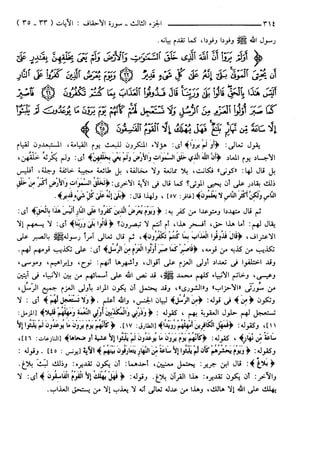 ٣١٤ الجزء الثالث - سورة الأحقاف : الآيات (٣٣ - ٣٥)
رسول الله ﷺ وفودا وفودا، كما تقدم بيانه.
﴿ أَوَلَمْ يَرَوْا أَنَّ اللَّهَ الَّذِي خَلَقَ السَّمَوَاتِ وَالْأَرْضَ وَلَمْ يَعْيَ بِخَلْقِهِنَّ بِقَادِرٍ عَلَى
أَنْ يُحْيِيَ الْمَوْتَى بَلَى إِنَّهُ عَلَى كُلِّ شَيْءٍ قَدِيرٌ ﴿٣٣﴾ وَيَوْمَ يُعْرَضُ الَّذِينَ كَفَرُوا عَلَى النَّارِ
أَلَيْسَ هَذَا بِالْحَقِّ قَالُوا بَلَى وَرَبِّنَا قَالَ فَذُوقُوا الْعَذَابَ بِمَا كُنْتُمْ تَكْفُرُونَ ﴿٣٤﴾ فَاصْبِرْ
كَمَا صَبَرَ أُولُو الْعَزْمِ مِنَ الرُّسُلِ وَلَا تَسْتَعْجِلْ لَهُمْ كَأَنَّهُمْ يَوْمَ يَرَوْنَ مَا يُوعَدُونَ لَمْ يَلْبَثُوا
إِلَّا سَاعَةً مِنْ نَهَارٍ بَلَاغٌ فَهَلْ يُهْلَكُ إِلَّا الْقَوْمُ الْفَاسِقُونَ ﴿٣٥﴾
يقول تعالى: ﴿أو لم يروا﴾ أي: هؤلاء المنكرون للبعث يوم القيامة، المستبعدون لقيام
الأجساد يوم المعاد ﴿أن الله الذي خلق السموات والأرض ولم يعي بخلقهن﴾ أي: ولم يكرثه خلقهن،
بل قال لها: «كوني» فكانت، بلا ممانعة ولا مخالفة، بل طائعة مجيبة خائفة وجلة، أفليس
ذلك بقادر على أن يحيي الموتى؟ كما قال في الآية الأخرى: ﴿لخلق السموات والأرض أكبر من خلق
الناس ولكن أكثر الناس لا يعلمون﴾ [غافر: ٥٧] ، ولهذا قال: ﴿بلى إنه على كل شيء قدير﴾.
ثم قال متهددا ومتوعدا من كفر به: ﴿ويوم يعرض الذين كفروا على النار أليس هذا بالحق﴾ أي:
يقال لهم: أما هذا حق، أفسحر هذا، أم أنتم لا تبصرون؟ ﴿قالوا بلى وربنا﴾ أي: لا يسعهم إلا
الاعتراف، ﴿قال فذوقوا العذاب بما كنتم تكفرون﴾. ثم قال تعالى آمرا رسوله ﷺ بالصبر على
تكذيب من كذبه من قومه، ﴿فاصبر كما صبر أولوا العزم من الرسل﴾ أي: على تكذيب قومهم لهم.
وقد اختلفوا في تعداد أولي العزم على أقوال، وأشهرها أنهم: نوح، وإبراهيم، وموسى،
وعيسى، وخاتم الأنبياء كلهم محمد ﷺ، قد نص الله على أسمائهم من بين الأنبياء في آيتين
من سورتي «الأحزاب» و«الشورى»، وقد يحتمل أن يكون المراد بأولي العزم جميع الرسل،
وتكون ﴿من﴾ في قوله: ﴿من الرسل﴾ لبيان الجنس، والله أعلم. ﴿ولا تستعجل لهم﴾ أي: لا
تستعجل لهم حلول العقوبة بهم ، كقوله : ﴿وذرني والمكذبين أولي النعمة ومهلهم قليلا﴾ [المزمل:
١١]، وكقوله: ﴿فمهل الكافرين أمهلهم رويدا﴾ [الطارق: ١٧]. ﴿كأنهم يوم يرون ما يوعدون لم يلبثوا إلا
ساعة من نهار﴾ ، كقوله: ﴿كأنهم يوم يرونها لم يلبثوا إلا عشية أو ضحاها﴾ [النازعات: ٤٦]،
وكقوله: ﴿ويوم يحشرهم كأن لم يلبثوا إلا ساعة من النهار يتعارفون بينهم﴾ الآية [يونس : ٤٥] . وقوله :
﴿بلاغ﴾: قال ابن جرير: يحتمل معنيين، أحدهما: أن يكون تقديره: وذلك لبث بلاغ.
والآخر: أن يكون تقديره: هذا القرآن بلاغ. وقوله: ﴿فهل يهلك إلا القوم الفاسقون﴾ أي: لا
يهلك على الله إلا هالك، وهذا من عدله تعالى أنه لا يعذب إلا من يستحق العذاب.